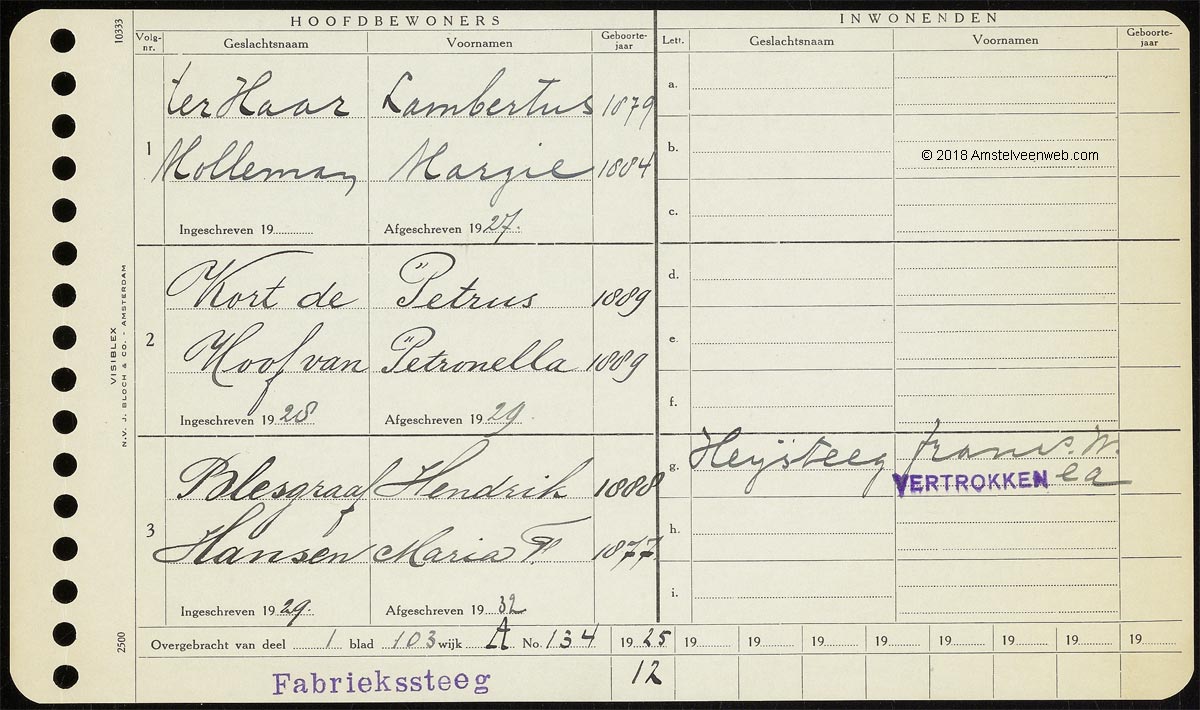 10333
HOOFDBEWONERS
INWONENDEN
Volg-nr. Geslachtsnaam Voornamen Geboorte-jaar Lett. Geslachtsnaam Voornamen Geboorte-jaar
1
ter Haar Lambertus 1879
Molleman Margie 1884
Ingeschreven 19 Afgeschreven 1927.
2
Kort de Petrus 1889
Hoof van Petronella 1889
Ingeschreven 1928 Afgeschreven 1929.
3
Blesgraaf Hendrik 1888
Hansen Maria F. 1877
Ingeschreven 1929. Afgeschreven 1932
a.
b.
© 2018 Amstelveenweb.com
c.
d.
e.
f.
g. Heijsteeg W.
VERTROKKEN ea
h.
i.
Overgebracht van deel 1 blad 103 wijk A No. 134 1925 19 19 19 19 19 19 19 19
Fabriekssteeg 12
VISIBLEX
N.V. J. BLOCH & CO. - AMSTERDAM
2500